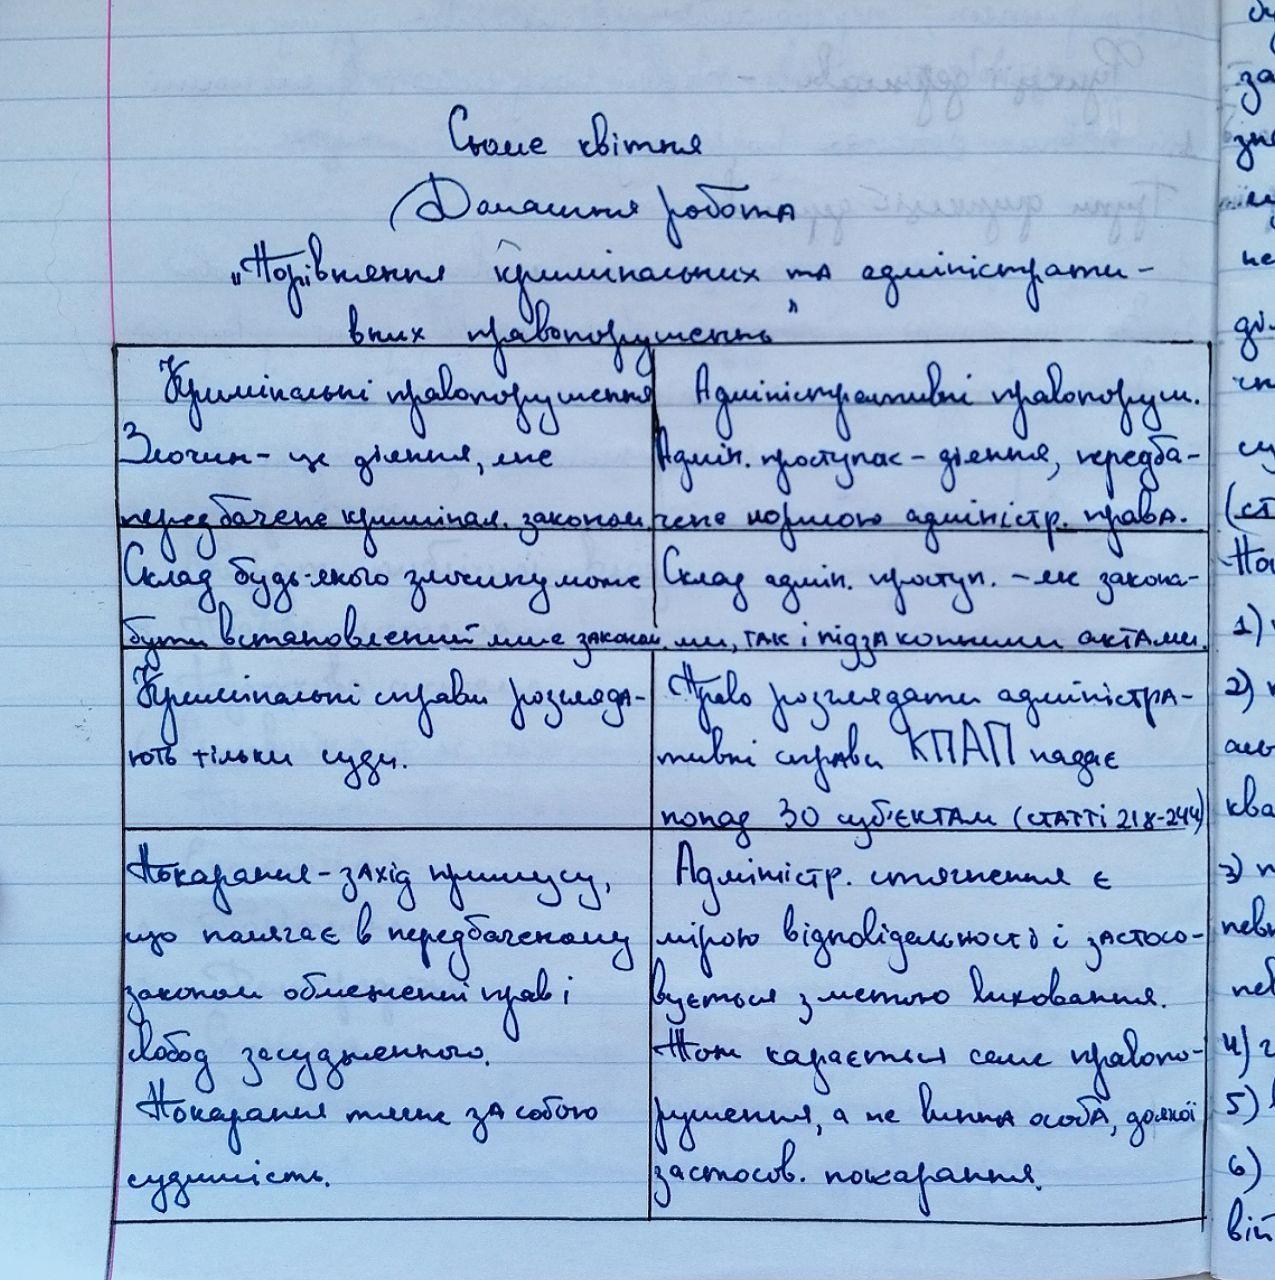 Сьоме квітня
Домашня робота
„Порівняння кримінальних та адміністрати-
вних правопорушень"
Кримінальні правопорушення
Злочин - це діяння, яке
передбачене криминал. законом.
Адміністративні правопоруш.
Адмін. проступас - діяння, передба-
чене нормою адміністр. права.
Склад будь-якого злочину може
бути встановлений лише законом.
Склад адмін. проступ. - як закона-
ми, так і підзаконними актами.
Кримінальні справи розгляда-
ють тільки суди.
Право розглядати адміністра-
тивні справи КПАП надає
понад 30 суб'єктам (статті 218-244)
Покарання - захід примусу,
що полягає в передбаченому
законом обмеженні прав і
свобод засудженого.
Покарання тягне за собою
судимість.
Адміністр. стягнення є
мірою відповідальності і застосо-
вується з метою виховання.
Тож карається саме правопо-
рушення, а не винна особа, до якої
застосов. покарання.
за
не
ді
(ст
1)
2)
ква
3)
4)
5)
6)
вій